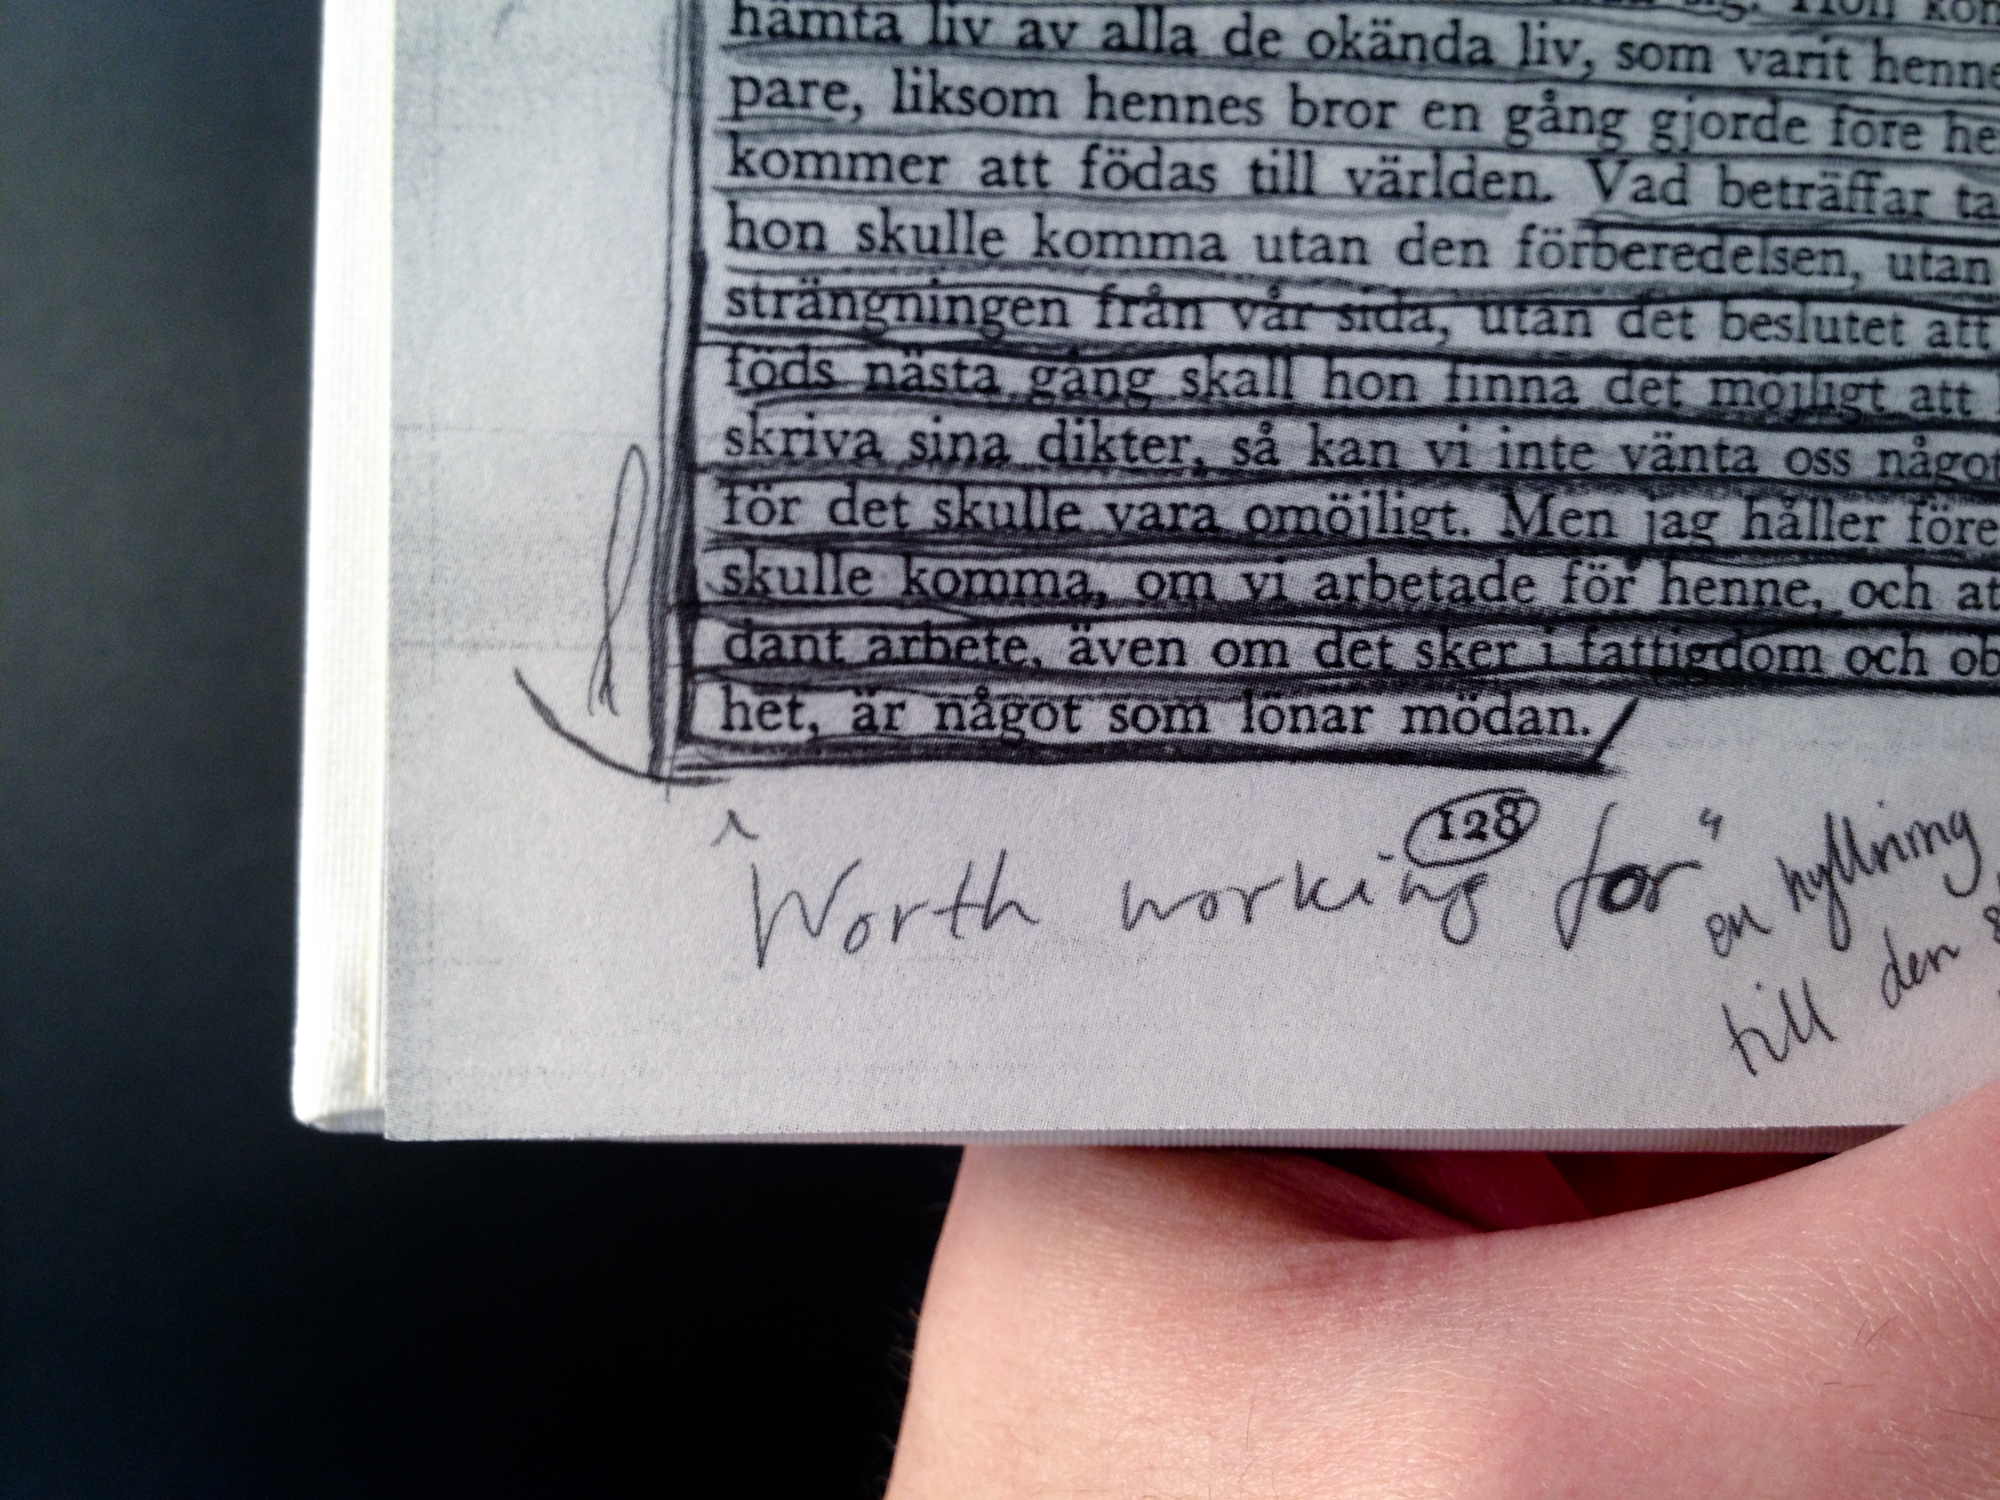 hämta liv av alla de okända liv, som varit henne
pare, liksom hennes bror en gång gjorde före he
kommer att födas till världen. Vad beträffar ta
hon skulle komma utan den förberedelsen, utan
strängningen från vår sida, utan det beslutet att
föds nästa gång skall hon finna det möjligt att
skriva sina dikter, så kan vi inte vänta oss någo
för det skulle vara omöjligt. Men jag håller före
skulle komma, om vi arbetade för henne, och at
dant arbete, även om det sker i fattigdom och ob
het, är något som lönar mödan.
128
"Worth working for"
en hyllning
till den